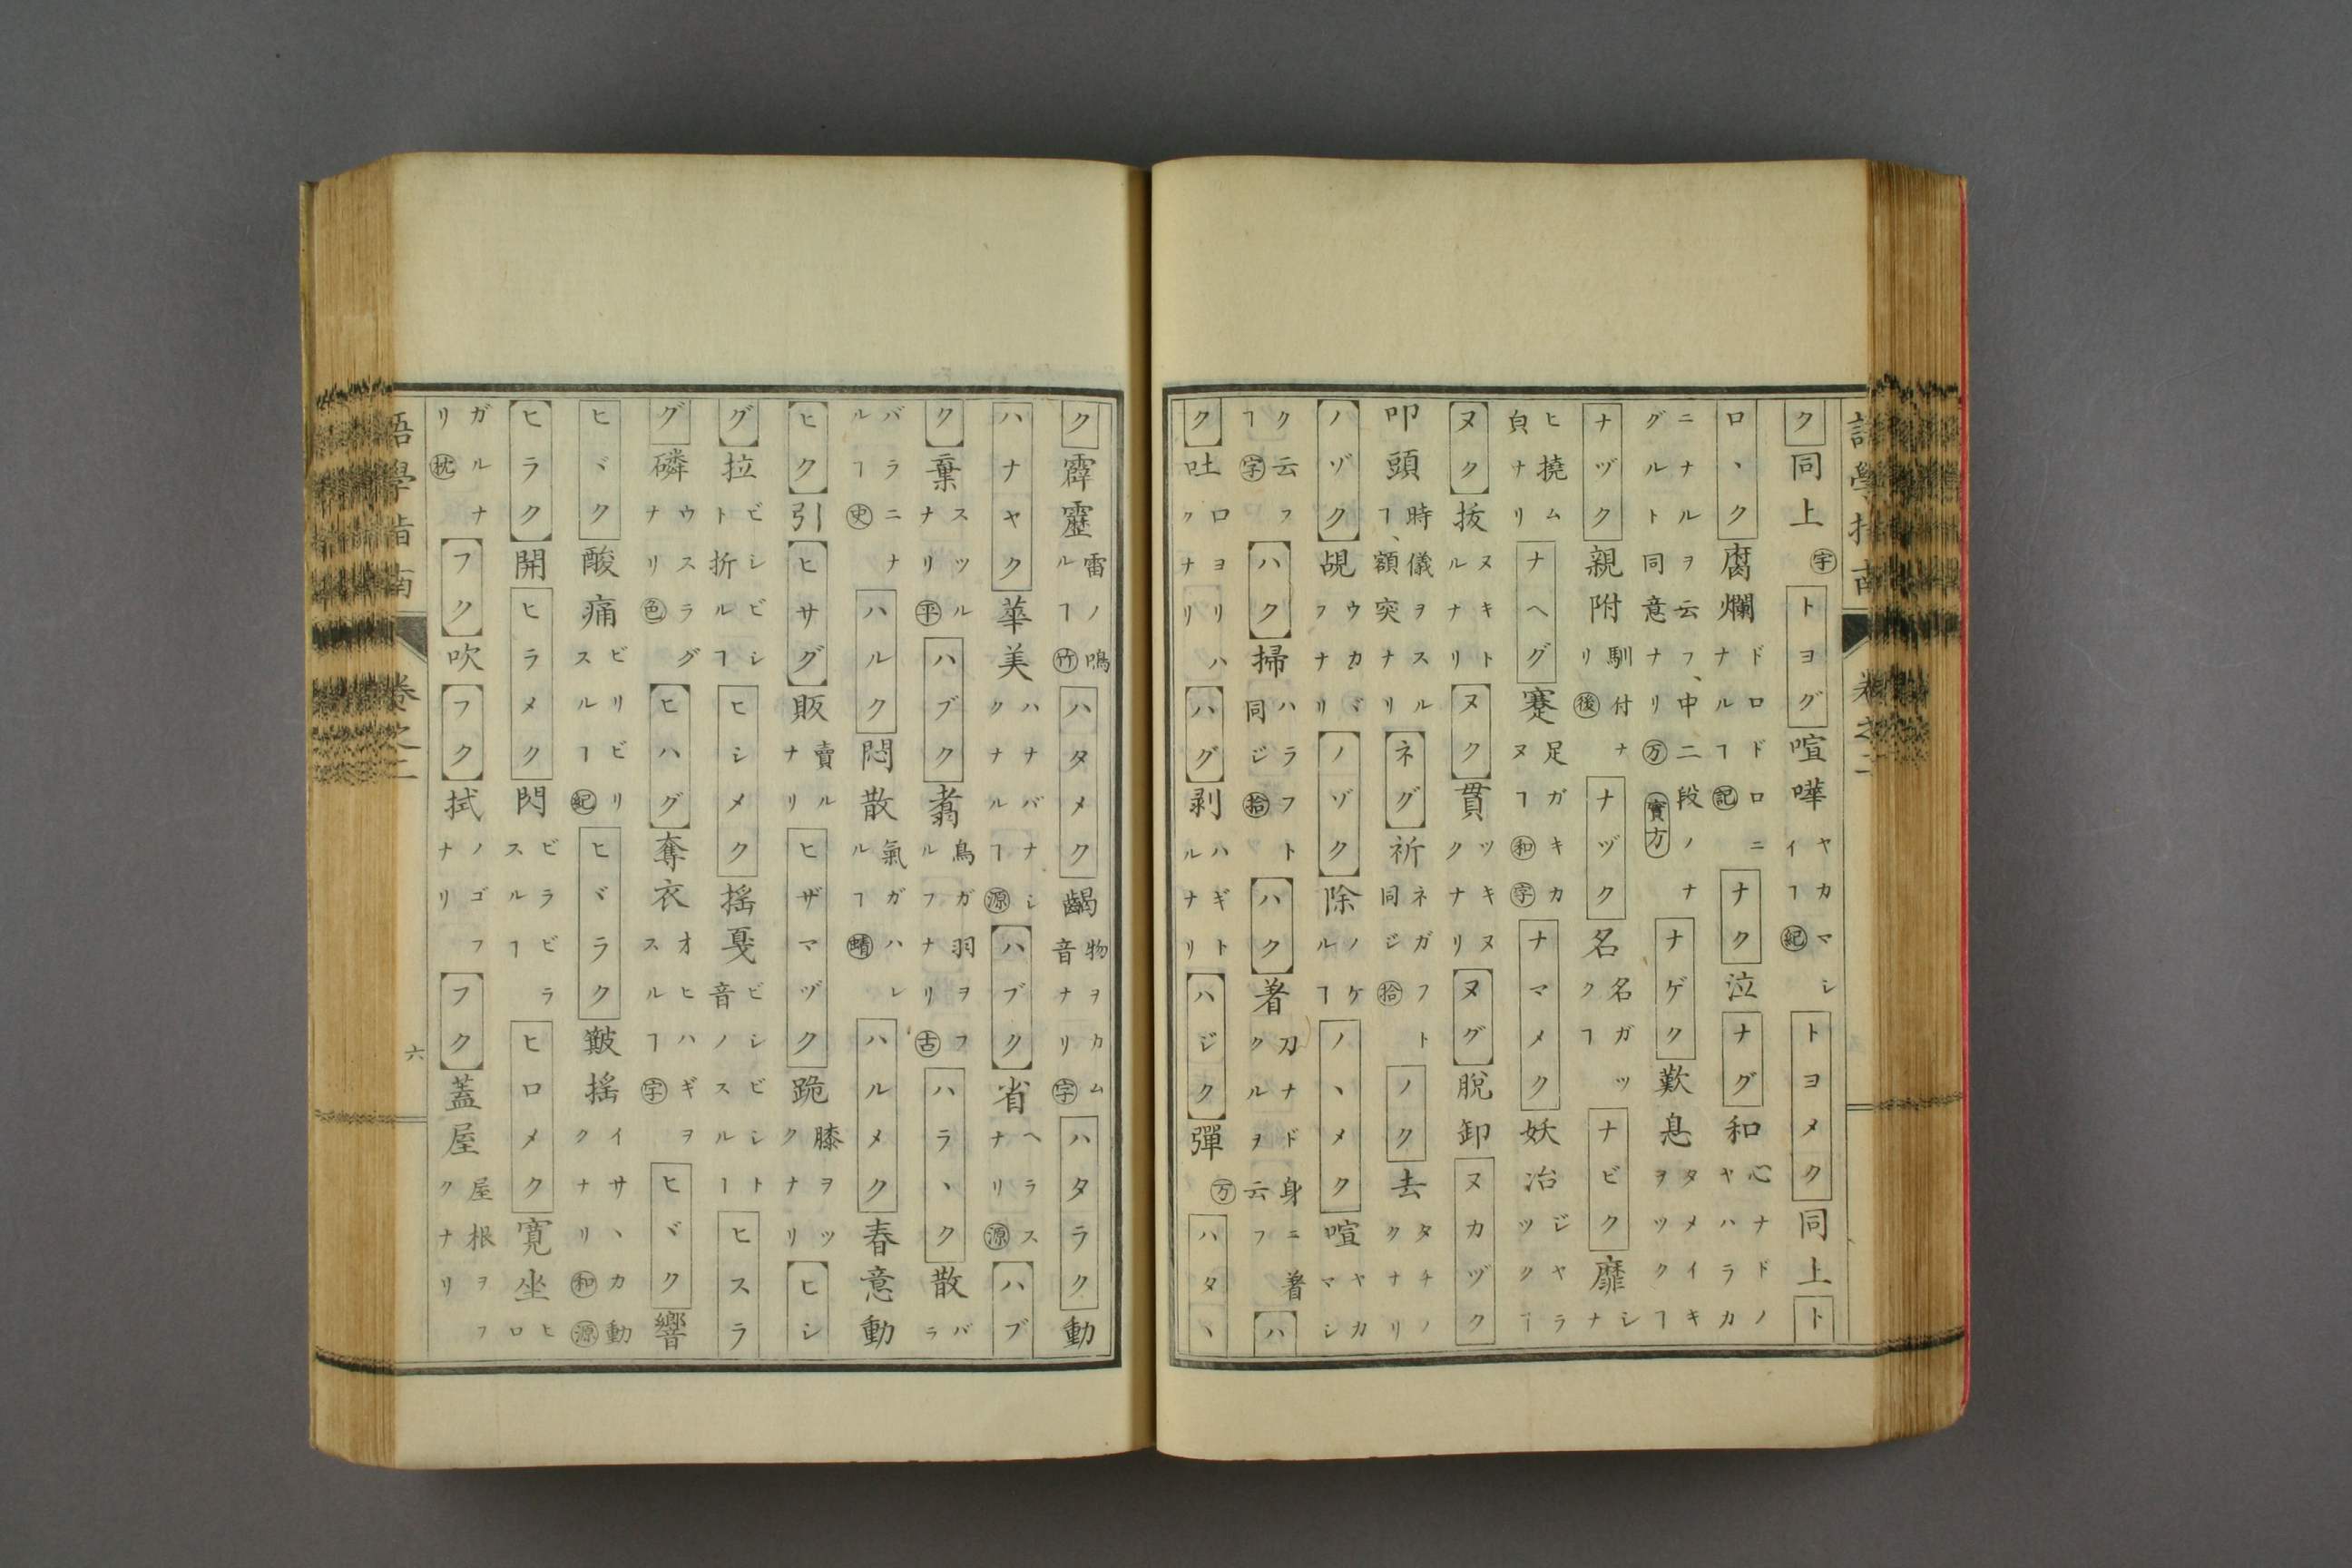 語學指南 卷之二
ク同上宇トヨグ喧嘩ヤカマシイヿ紀トヨメク同上ト
ロヽク腐爛ドロドロニナルヿ記ナク泣ナグ和心ナドノヤハラカ
ニナルヲ云フ、中二段ノナグルト同意ナリ万實方ナゲク歎息タメイキヲツクヿ
ナヅク親附馴付ナリ後ナヅク名名ガツクヿナビク靡シナ
ヒ撓ム皃ナリナヘグ蹇足ガキカヌヿ和字ナマメク妖冶ジヤラツクヿ
ヌク拔ヌキトルナリヌク貫ツキヌクナリヌグ脫卸ヌカヅク
叩頭時儀ヲスルヿ、額突ナリネグ祈ネガフト同ジ拾ノク去タチノクナリ
ノゾク覘ウカヾフナリノゾク除ノケルヿノヽメク喧ヤカマシ
ク云フヿ字ハク掃ハラフト同ジ拾ハク着刀ナド身ニ着クルヲ云フハ
ク吐口ヨリハクナリハグ剥ハギトルナリハジク彈万ハタヽ
ク霹靂雷ノ鳴ルヿ竹ハタメク物ヲカム音ナリ字ハタラク動
ハナヤク華美ハナバナシクナルヿ源ハブク省ヘラスナリ源ハブ
ク棄スツルナリ平ハブク翥鳥ガ羽ヲフルフナリ古ハラヽク散バラ
バラニナルヿ史ハルク悶散氣ガハレルヿ蜻ハルメク春意動
ヒク引ヒサグ販賣ルナリヒザマヅク跪膝ヲツクナリヒシ
グ拉ビシビシト折ルヿヒシメク搖戛ビシビシト音ノスルヿヒスラ
グ磷ウスラグナリ色ヒハグ奪衣オヒハギヲスルヿ字ヒヾク響
ヒヾク酸痛ビリビリスルヿ紀ヒヾラク搖イサヽカ動クナリ和源
ヒラク開ヒラメク閃ビラビラスルヿヒロメク寛坐ヒロ
ガルナリ枕フク吹フク拭ノゴフナリフク蓋屋屋根ヲフクナリ
語學指南 卷之二 六